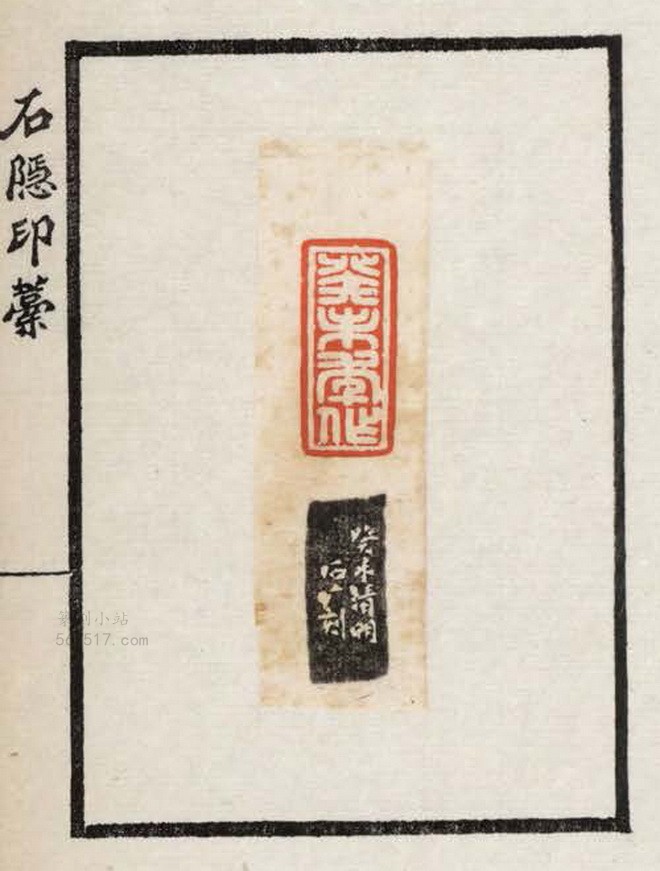 石隱印藁
癸未年作
癸未清明
石
刻
篆刻小站
561517.com